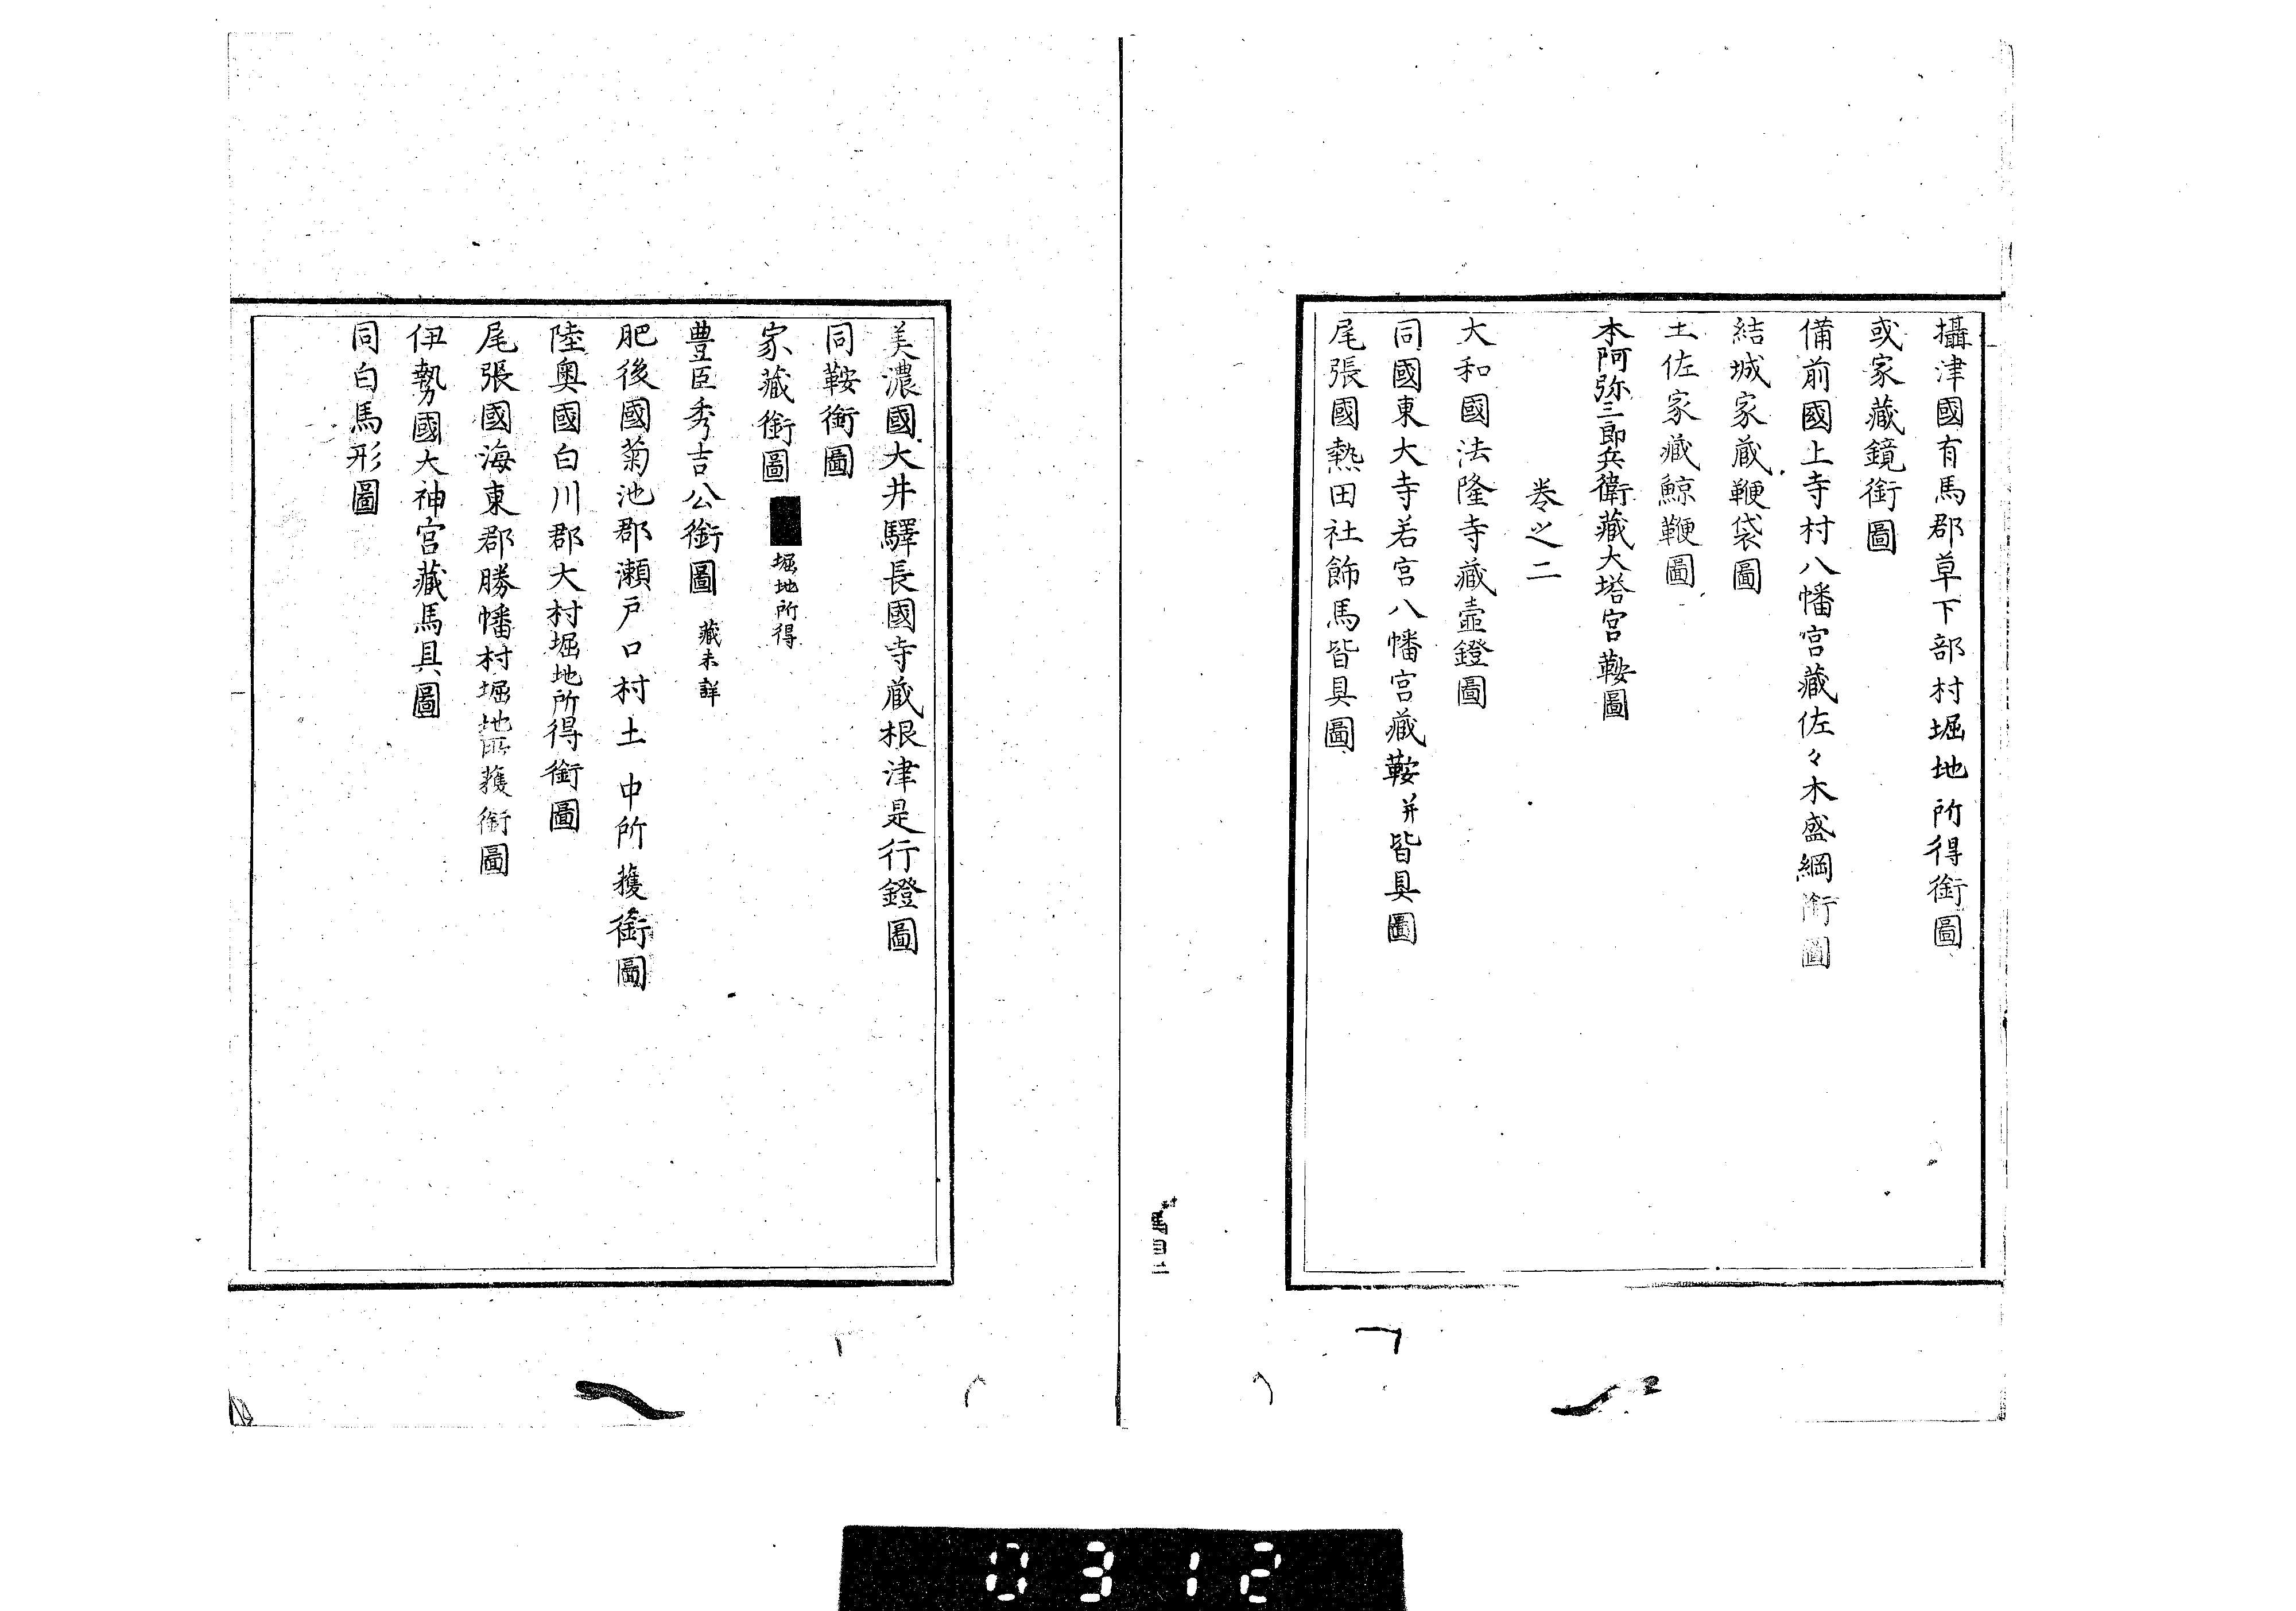 攝津國有馬郡草下部村堀地所得銜圖
或家藏鏡銜圖
備前國上寺村八幡宮藏佐々木盛綱銜圖
結城家蔵鞭袋圖
土佐家藏鯨鞭圖
本阿弥三郎兵衛藏大塔宮鞍圖
卷之二
大和國法隆寺藏壷鐙圖
同國東大寺若宮八幡宮藏鞍并皆具圖
尾張國熱田社飾馬皆具圖
馬目二
美濃國大井驛長國寺蔵根津是行鐙圖
同鞍銜圖
家藏銜圖 堀地所得
豊臣秀吉公銜圖 藏未詳
肥後國菊池郡瀬戸口村土中所獲銜圖
陸奥國白川郡大村堀地所得銜圖
尾張國海東郡勝幡村堀地所獲銜圖
伊勢國大神宮藏馬具圖
同白馬形圖
0312